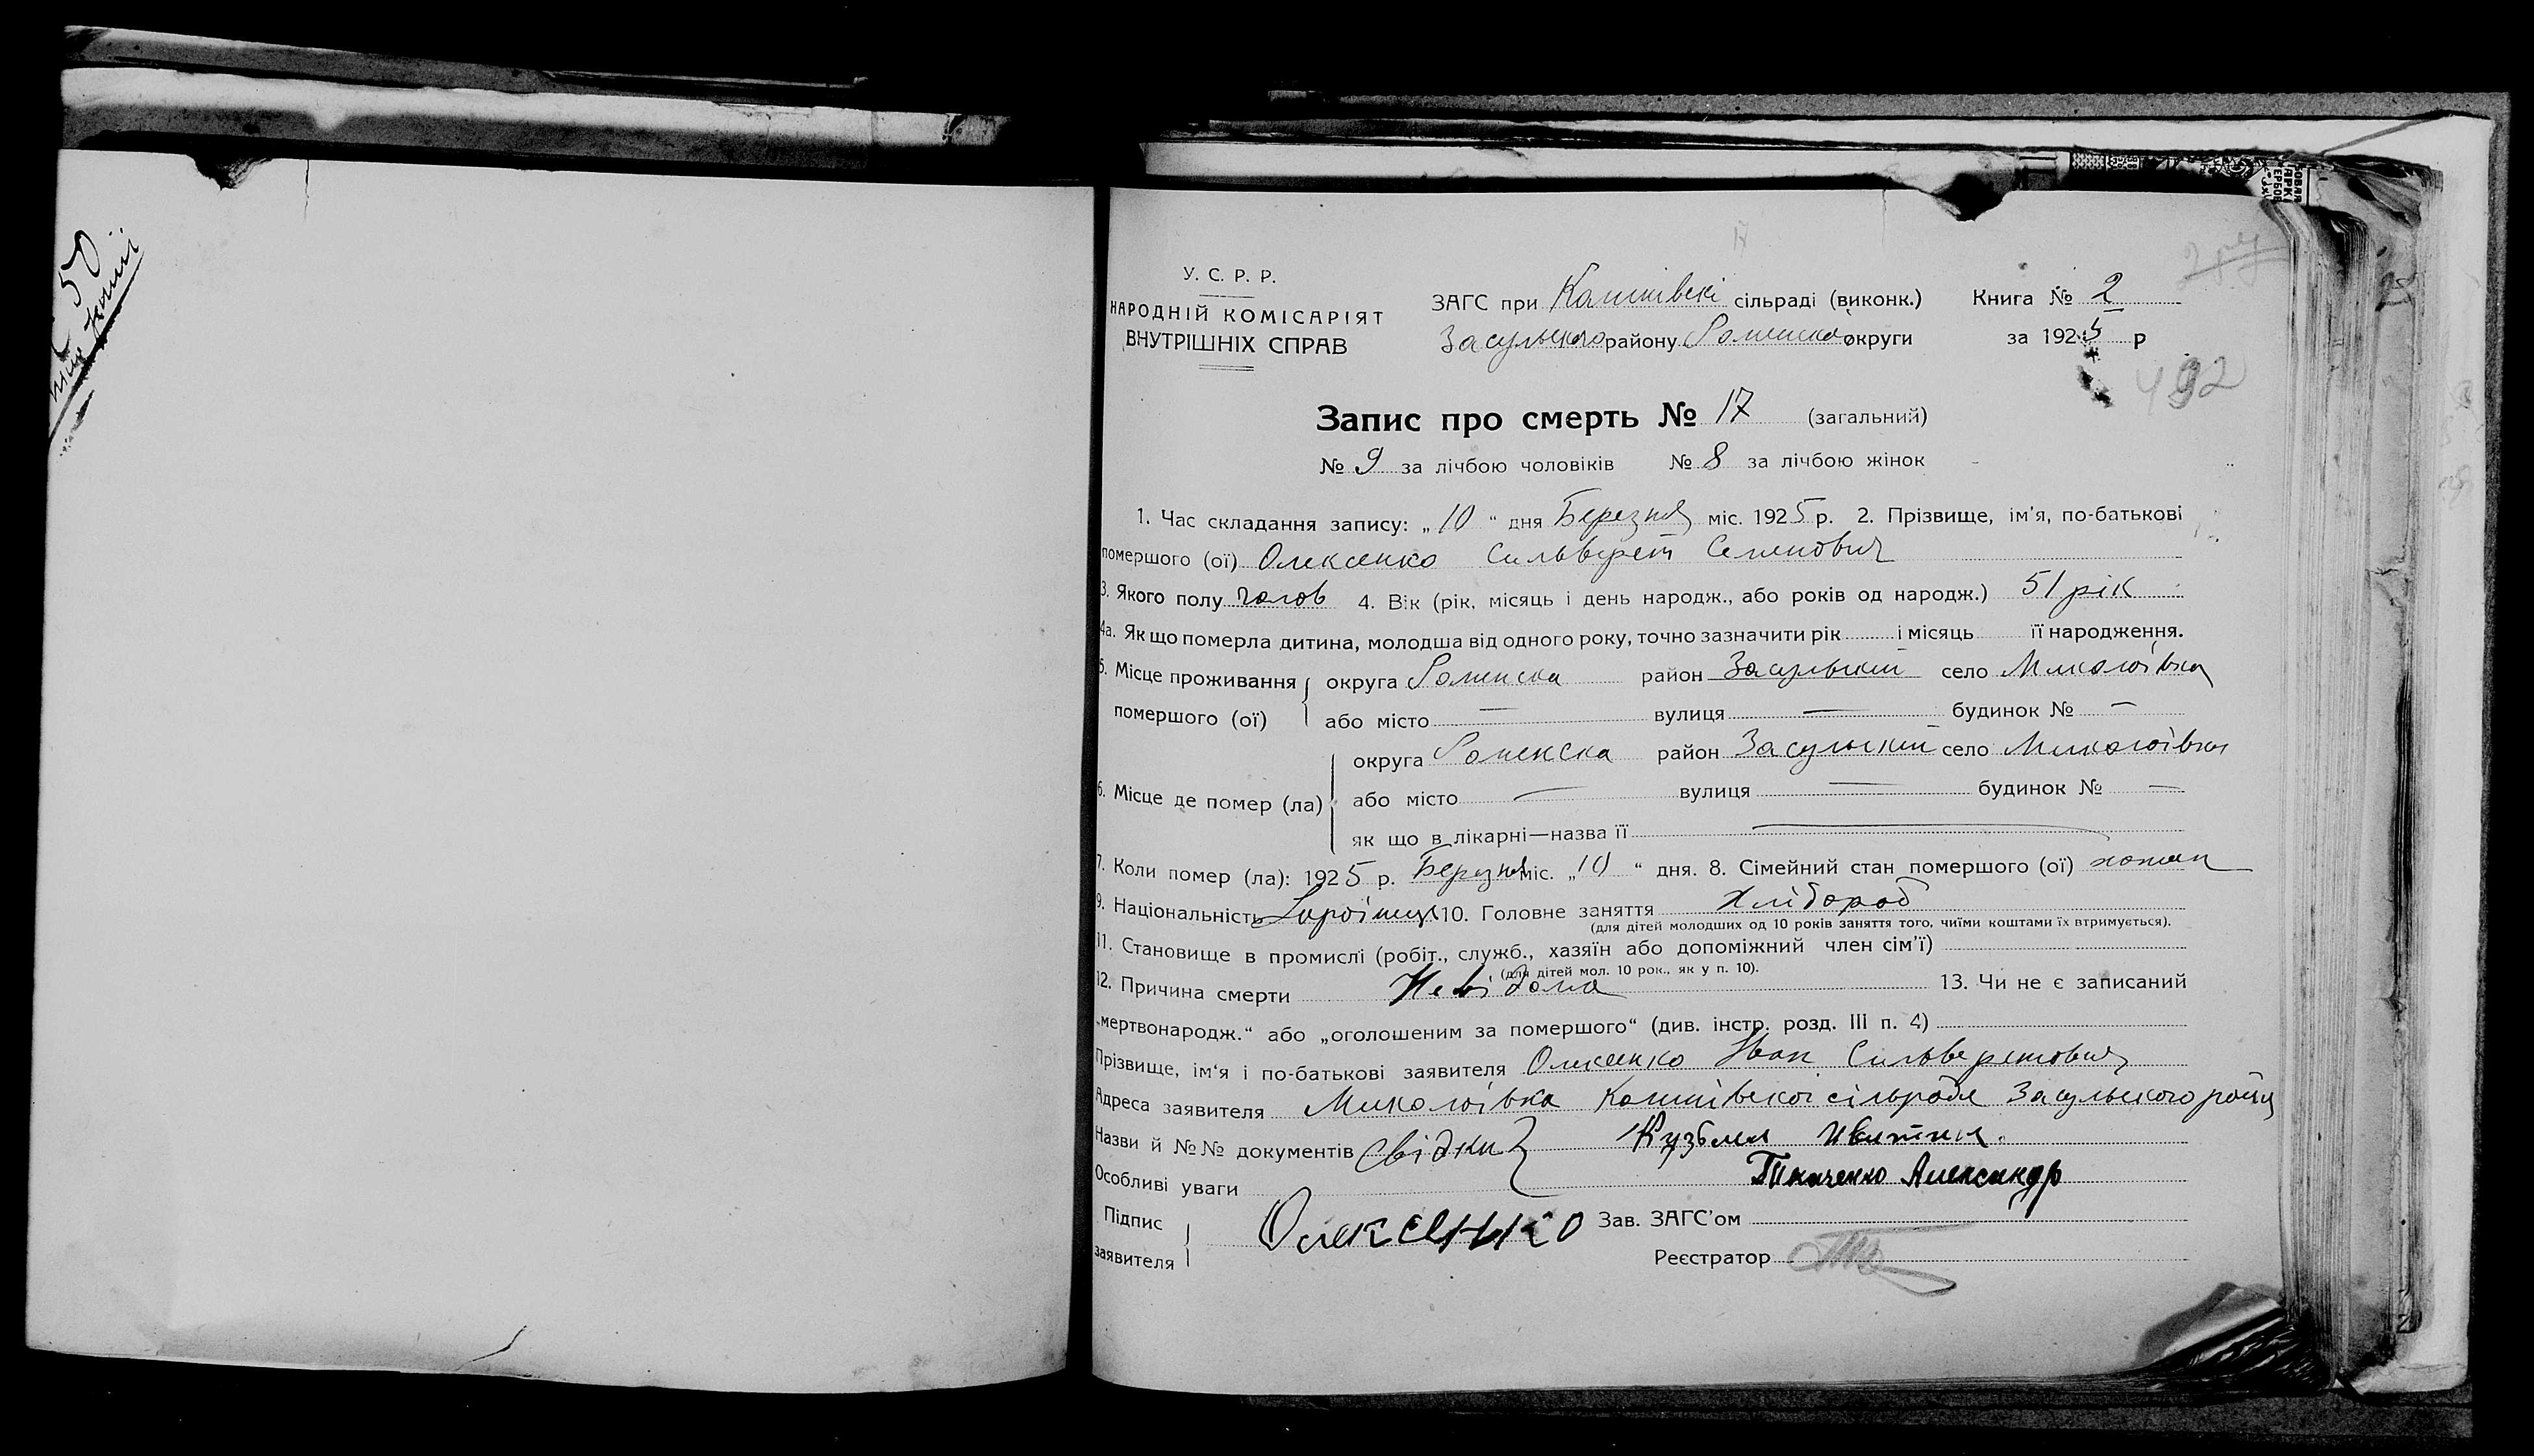 У. С. Р. Р.
НАРОДНІЙ КОМІСАРІЯТ
ВНУТРІШНІХ СПРАВ
ЗАГС при сільраді (виконк.) Книга № 2
Засульского району Роменскої округи за 1925 р
492
Запис про смерть № 17 (загальний)
№ 9 за лічбою чоловіків № 8 за лічбою жінок
1. Час складання запису: „10“ дня Березня міс. 1925 р. 2. Прізвище, ім'я, по-батькові
помершого (ої) Олексенко Сильверст Семенович
3. Якого полу чолов 4. Вік (рік, місяць і день народж., або років од народж.) 51 рік
4а. Як що померла дитина, молодша від одного року, точно зазначити рік і місяць її народження.
5. Місце проживання округа Роменска район Засульский село Миколоївка
помершого (ої) або місто — вулиця — будинок № —
округа Роменска район Засульский село Миколоївка
6. Місце де помер (ла) або місто — вулиця — будинок № —
як що в лікарні—назва її —
7. Коли помер (ла): 1925 р. Березня міс. „10“ дня. 8. Сімейний стан помершого (ої)
9. Національність 10. Головне заняття Хлібороб
(для дітей молодших од 10 років заняття того, чиїми коштами їх втримується).
11. Становище в промислі (робіт., служб., хазяїн або допоміжний член сім'ї)
(для дітей мол. 10 рок., як у п. 10).
12. Причина смерти Невідома 13. Чи не є записаний
„мертвонародж.“ або „оголошеним за помершого“ (див. інстр. розд. III п. 4)
Прізвище, ім'я і по-батькові заявителя Олексенко Иван Сильверстович
Адреса заявителя Миколоївка сільради Засульского
Назви й №№ документів Свідки Кузьма
Особливі уваги Ткаченко Александр
Підпис
заявителя Олексенко Зав. ЗАГС'ом
Реєстратор